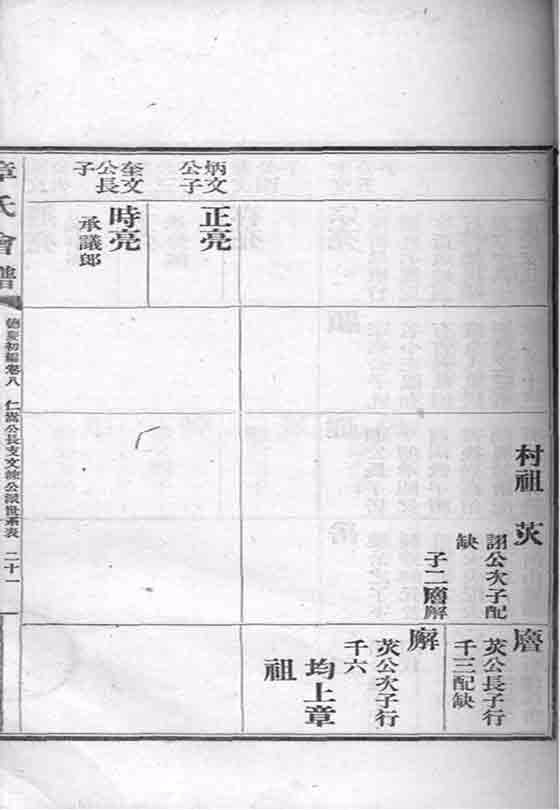 炳文
公子
正亮
奎文
公長
子
時亮
承議郎
村祖 芡
詡公次子配
缺
子二廥廨
廥
芡公長子行
千三配缺
廨
芡公次子行
千六
均上章
祖
章氏會譜
德慶初編卷八 仁嵩公長支文公派世系表 二十一